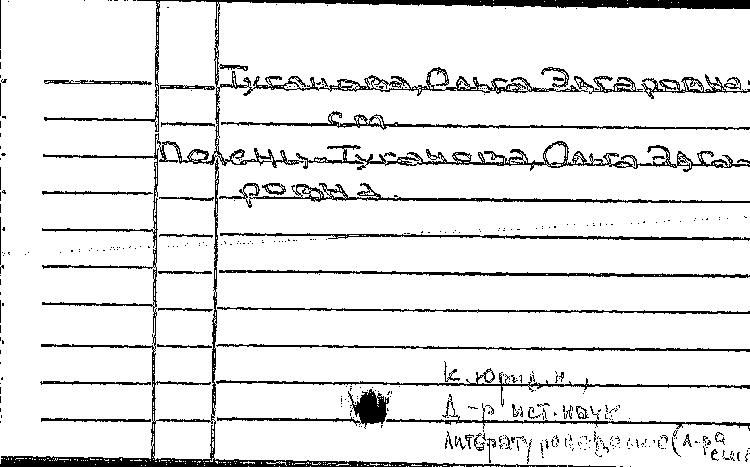 Туганова, Ольга Эдгаровна
см.
Полень-Туганова, Ольга Эдга-
ровна.
к. юрид. н.,
Д-р ист. наук
Литературоведение (л-ра